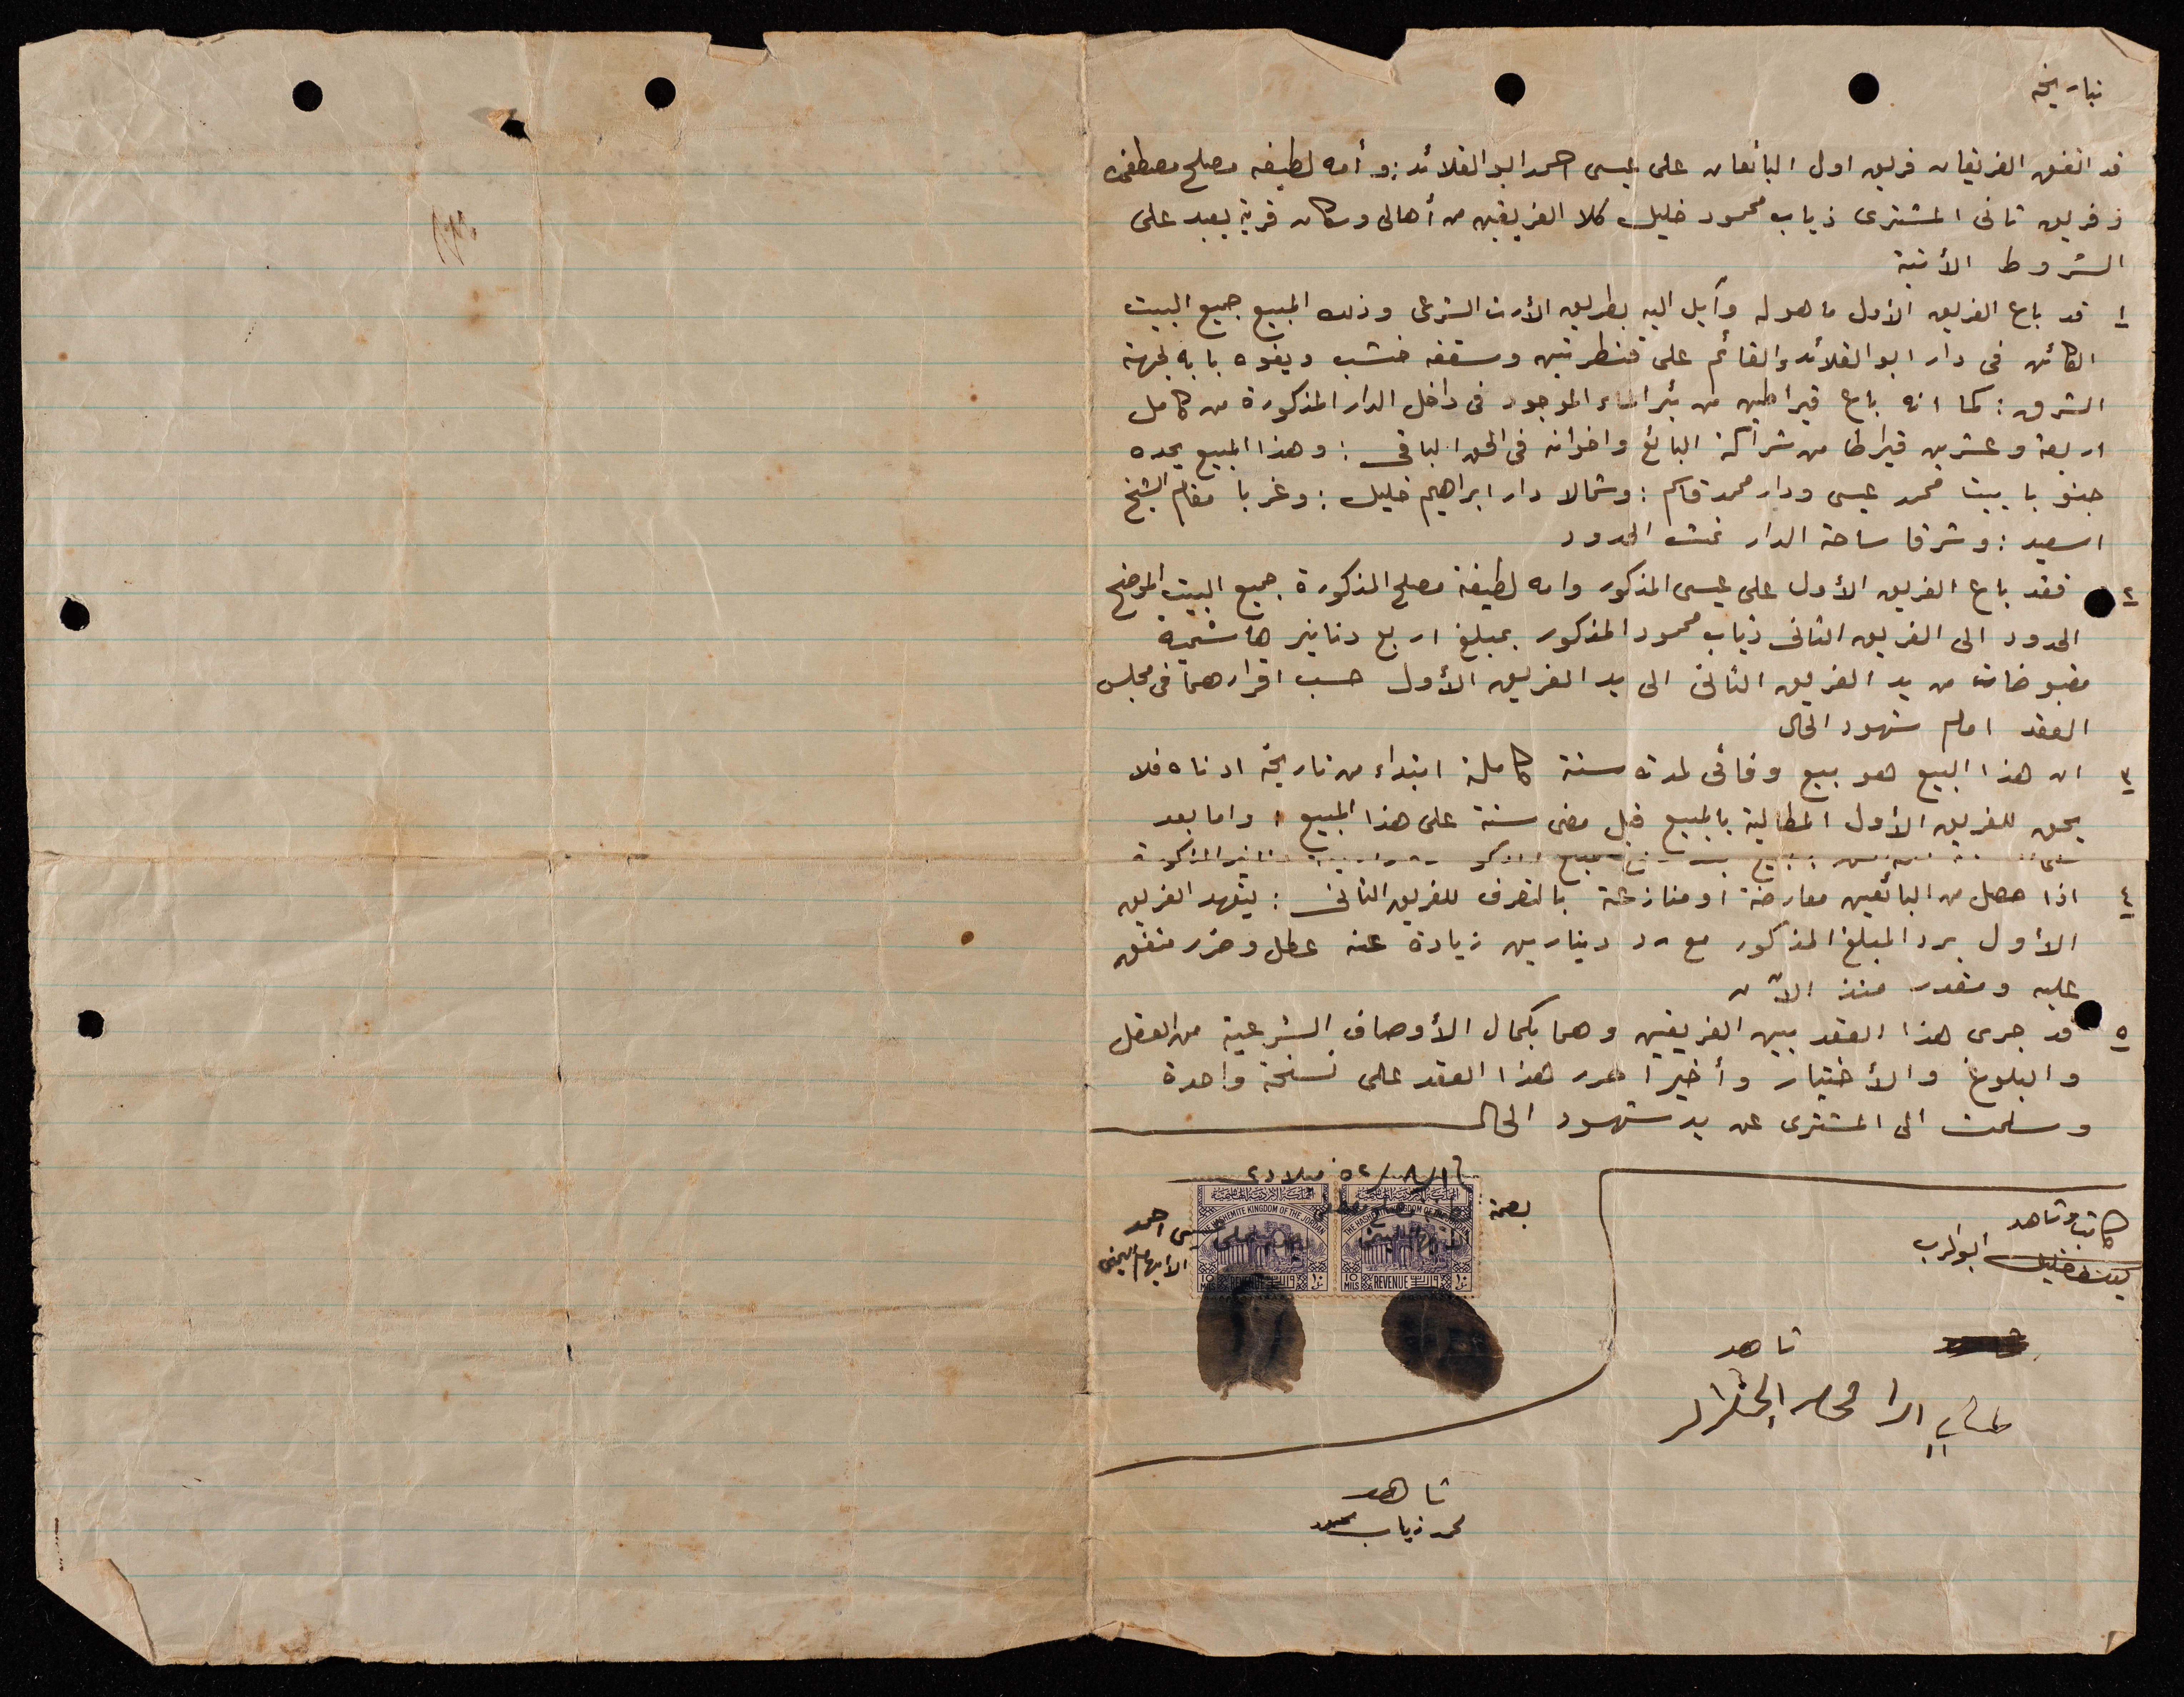 بتاريخه
قد اتفق الفريقان فريق اول البائعان على عيسى احمد ابو القلائد : و أمه لطيفه مصلح مصطفى
و فريق ثانى المشترى ذياب محمود خليل كلا الفريقين من أهالى وسكان قرية يعبد على
الشروط الأتية
١ قد باع الفريق الأول ما هو له وآيل اليه بطريق الأرث الشرعى وذلك المبيع جميع البيت
الكائن فى دار ابو القلائد والقائم على قنطرتين وسقفه خشب ويفوه بابه لجهة
الشرق : كما انه باع قيراطين من بئر الماء الموجود فى داخل الدار المذكورة من كامل
اربعة وعشرين قيراطا من شراكة البائع واخوانه فى الحق الباقى : وهذا المبيع يحده
جنوبا بيت محمد عيسى ودار محمد قاسم : وشمالا دار ابراهيم خليل : وغربا مقام الشيخ
اسعيد : وشرقا ساحة الدار تمت الحدود
٢ فقد باع الفريق الأول على عيسى المذكور وامه لطيفة مصلح المذكورة جميع البيت الموضح
الحدود الى الفريق الثانى ذياب محمود المذكور بمبلغ اربع دنانير هاشمية
مقبوضات من يد الفريق الثانى الى يد الفريق الأول حسب اقرارهما فى مجلس
العقد امام شهود الحال
٣ ان هذا البيع هو بيع وفائى لمدة سنة كاملة ابتداء من تاريخه ادناه فلا
يحق للفريق الأول المطالبة بالمبيع قبل مضى سنة على هذا المبيع ، واما بعد
المذكورة
٤ اذا حصل من البائعين معارضة او منازعة بالتصرف للفريق الثانى : يتعهد الفريق
الأول برد المبلغ المذكور مع رد دينارين زيادة عنه عطل وضرر متفق
عليه ومقدر منذ الآن
٥ قد جرى هذا العقد بين الفريقين وهما بكمال الأوصاف الشرعية من العقل
والبلوغ والأختيار وأخيرا حرر هذا العقد على نسخة واحدة
وسلمت الى المشترى عن يد شهود الحال
٥٢ ميلادى
بصمة لطيفه مصلح مصطفى
على عيسى احمد
الأبهام اليمنى
THE HASHEMITE KINGDOM OF THE JORDAN
10 MILS REVENUE ١٠
THE HASHEMITE KINGDOM OF THE JORDAN
10 MILS REVENUE ١٠
كاتبه وشاهد
يوسف خليل ابو الرب
شاهد
شاهد
محمد ذياب محمود